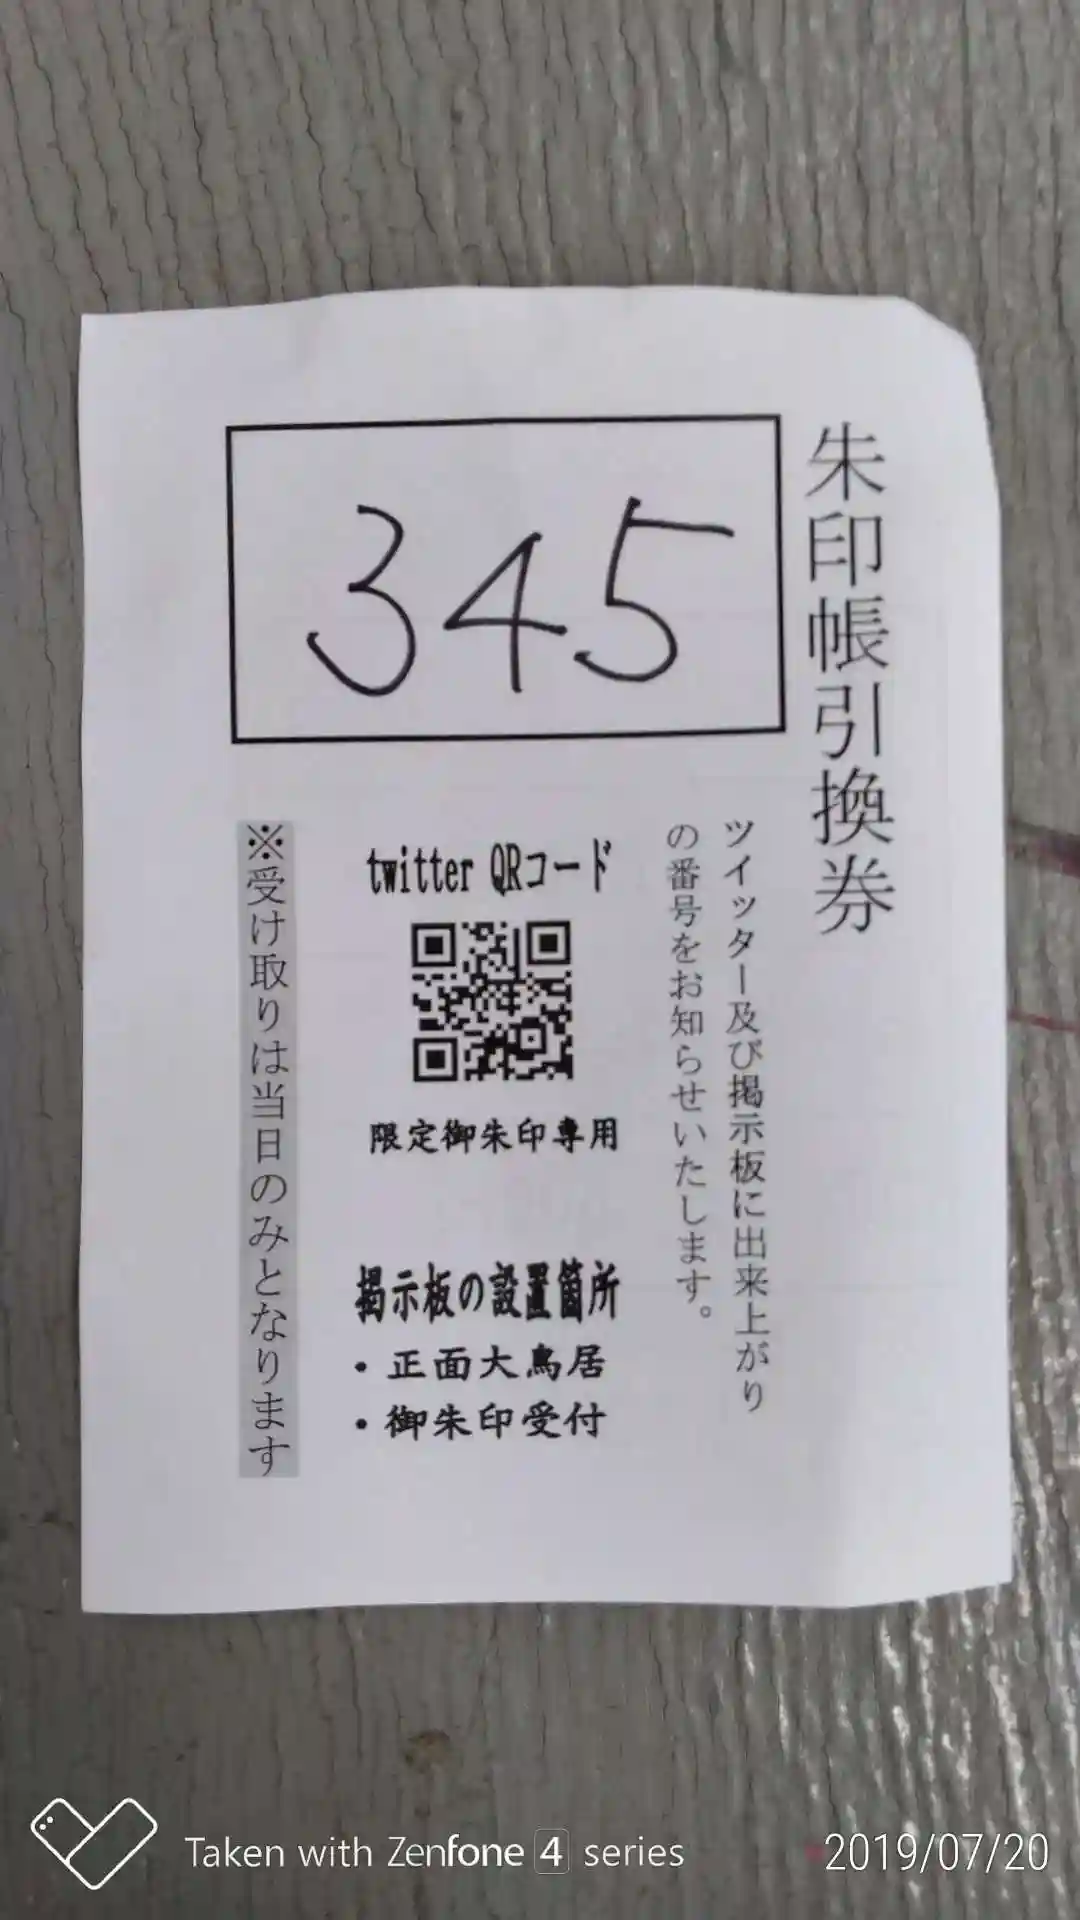 朱印帳引換券
345
ツイッター及び掲示板に出来上がり
の番号をお知らせいたします。
twitter QRコード
限定御朱印専用
掲示板の設置箇所
・正面大鳥居
・御朱印受付
※受け取りは当日のみとなります
Taken with Zenfone 4 series
2019/07/20